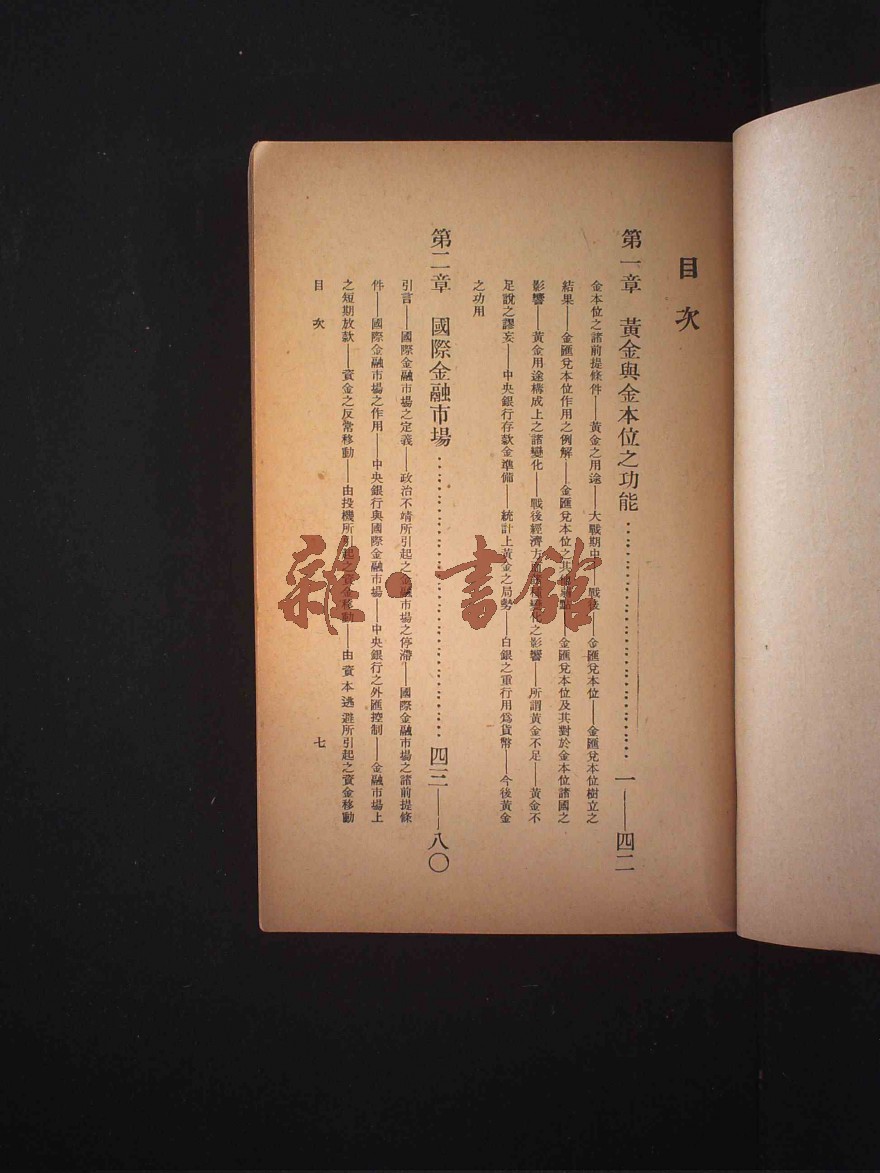 目次
第一章 黃金與金本位之功能…………一——四二
金本位之諸前提條件——黃金之用途——大戰期中——戰後——金匯兌本位——金匯兌本位樹立之
結果——金匯兌本位作用之例解——金匯兌本位之其他弱點——金匯兌本位及其對於金本位諸國之
影響——黃金用途構成上之諸變化——戰後經濟方面各種變化之影響——所謂黃金不足——黃金不
足說之謬妄——中央銀行存款金準備——統計上黃金之局勢——白銀之重行用爲貨幣——今後黃金
之功用
第二章 國際金融市場…………四三——八〇
引言——國際金融市場之定義——政治不靖所引起之金融市場之停滯——國際金融市場之諸前提條
件——國際金融市場之作用——中央銀行與國際金融市場——中央銀行之外匯控制——金融市場上
之短期放款——資金之反常移動——由投機所引起之資金移動——由資本逃避所引起之資金移動
目次 七
雜·書館